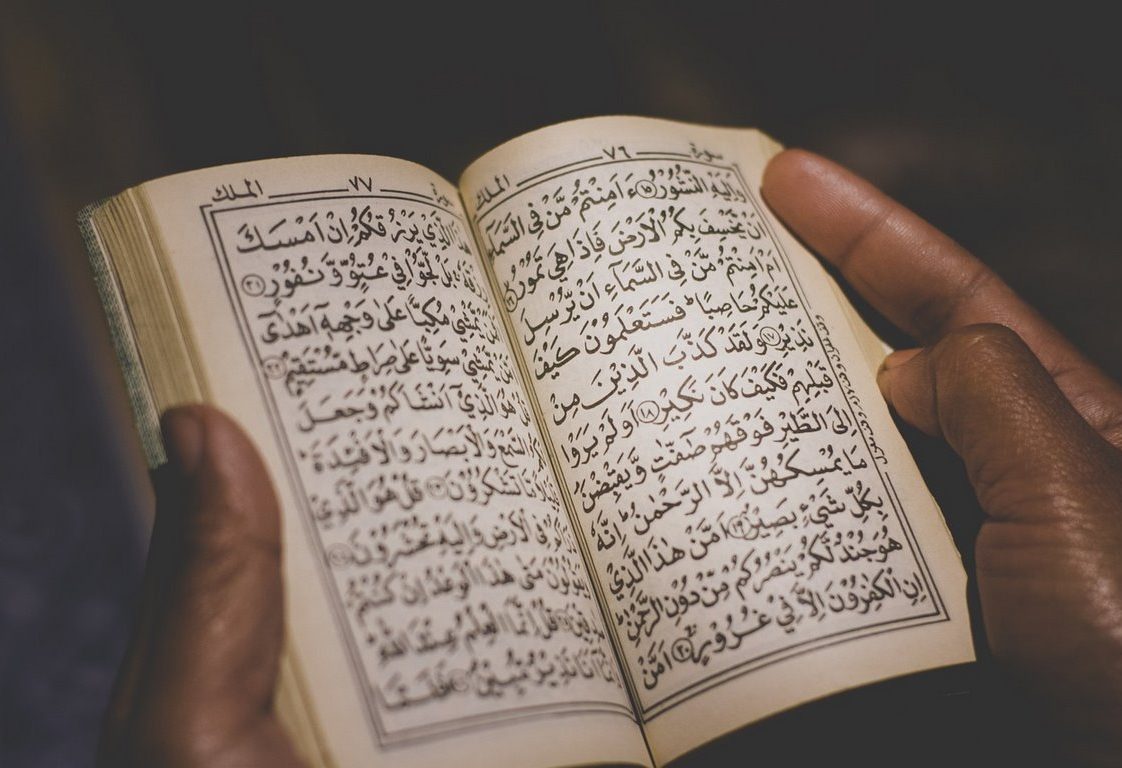 سورة ٧٦ الملك
وَاِلَيْهِ النُّشُوْرُ ﴿١٥﴾ ءَاَمِنْتُمْ مَّنْ فِي السَّمَآءِ
اَنْ يَّخْسِفَ بِكُمُ الْاَرْضَ فَاِذَا هِيَ تَمُوْرُ ﴿١٦﴾
اَمْ اَمِنْتُمْ مَّنْ فِي السَّمَآءِ اَنْ يُّرْسِلَ
عَلَيْكُمْ حَاصِبًا فَسَتَعْلَمُوْنَ كَيْفَ
نَذِيْرِ ﴿١٧﴾ وَلَقَدْ كَذَّبَ الَّذِيْنَ مِنْ
قَبْلِهِمْ فَكَيْفَ كَانَ نَكِيْرِ ﴿١٨﴾ اَوَلَمْ يَرَوْا
اِلَى الطَّيْرِ فَوْقَهُمْ صٰٓفّٰتٍ وَّيَقْبِضْنَ
مَا يُمْسِكُهُنَّ اِلَّا الرَّحْمٰنُ ؕ اِنَّهٗ
بِكُلِّ شَيْءٍ بَصِيْرٌ ﴿١٩﴾ اَمَّنْ هٰذَا الَّذِيْ
هُوَ جُنْدٌ لَّكُمْ يَنْصُرُكُمْ مِّنْ دُوْنِ الرَّحْمٰنِ ؕ
اِنِ الْكٰفِرُوْنَ اِلَّا فِيْ غُرُوْرٍ ﴿٢٠﴾ اَمَّنْ
سورة ٧٧ الملك
هٰذَا الَّذِيْ يَرْزُقُكُمْ اِنْ اَمْسَكَ
رِزْقَهٗ بَلْ لَّجُّوْا فِيْ عُتُوٍّ وَّنُفُوْرٍ ﴿٢١﴾
اَفَمَنْ يَّمْشِيْ مُكِبًّا عَلٰى وَجْهِهٖٓ اَهْدٰٓى
اَمَّنْ يَّمْشِيْ سَوِيًّا عَلٰى صِرَاطٍ مُّسْتَقِيْمٍ ﴿٢٢﴾
قُلْ هُوَ الَّذِيْٓ اَنْشَاَكُمْ وَجَعَلَ
لَكُمُ السَّمْعَ وَالْاَبْصَارَ وَالْاَفْـِٕدَةَ
قَلِيْلًا مَّا تَشْكُرُوْنَ ﴿٢٣﴾ قُلْ هُوَ الَّذِيْ
ذَرَاَكُمْ فِي الْاَرْضِ وَاِلَيْهِ تُحْشَرُوْنَ ﴿٢٤﴾
وَيَقُوْلُوْنَ مَتٰى هٰذَا الْوَعْدُ اِنْ كُنْتُمْ
صٰدِقِيْنَ ﴿٢٥﴾ قُلْ اِنَّمَا الْعِلْمُ عِنْدَ اللّٰهِ
وَاِنَّمَآ اَنَا نَذِيْرٌ مُّبِيْنٌ ﴿٢٦﴾ فَلَمَّا